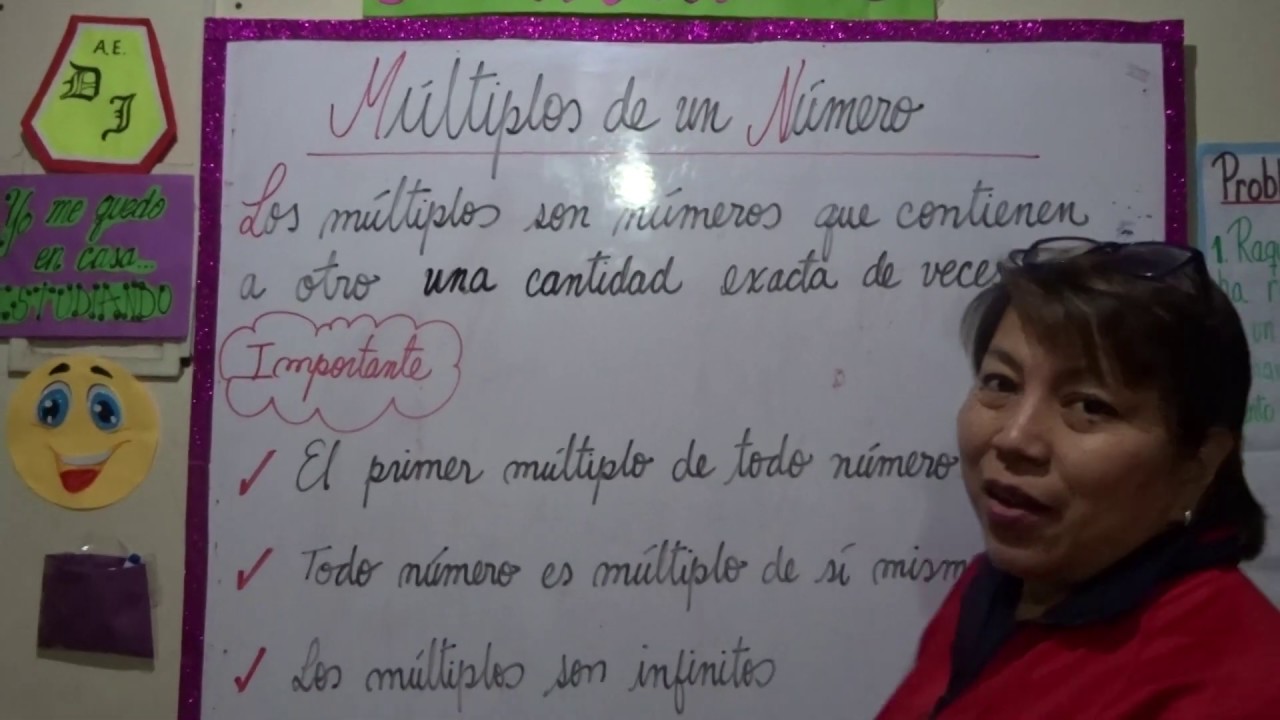 A.E.
D J
Yo me quedo
en casa...
ESTUDIANDO
Múltiplos de un Número
Los múltiplos son números que contienen
a otro una cantidad exacta de veces
Importante
✓ El primer múltiplo de todo número
✓ Todo número es múltiplo de sí mism
✓ Los múltiplos son infinitos
Probl
1. Raq
ba
un